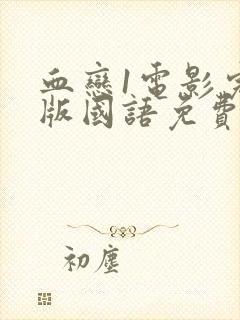 血戀1電影
版國語免費
初塵